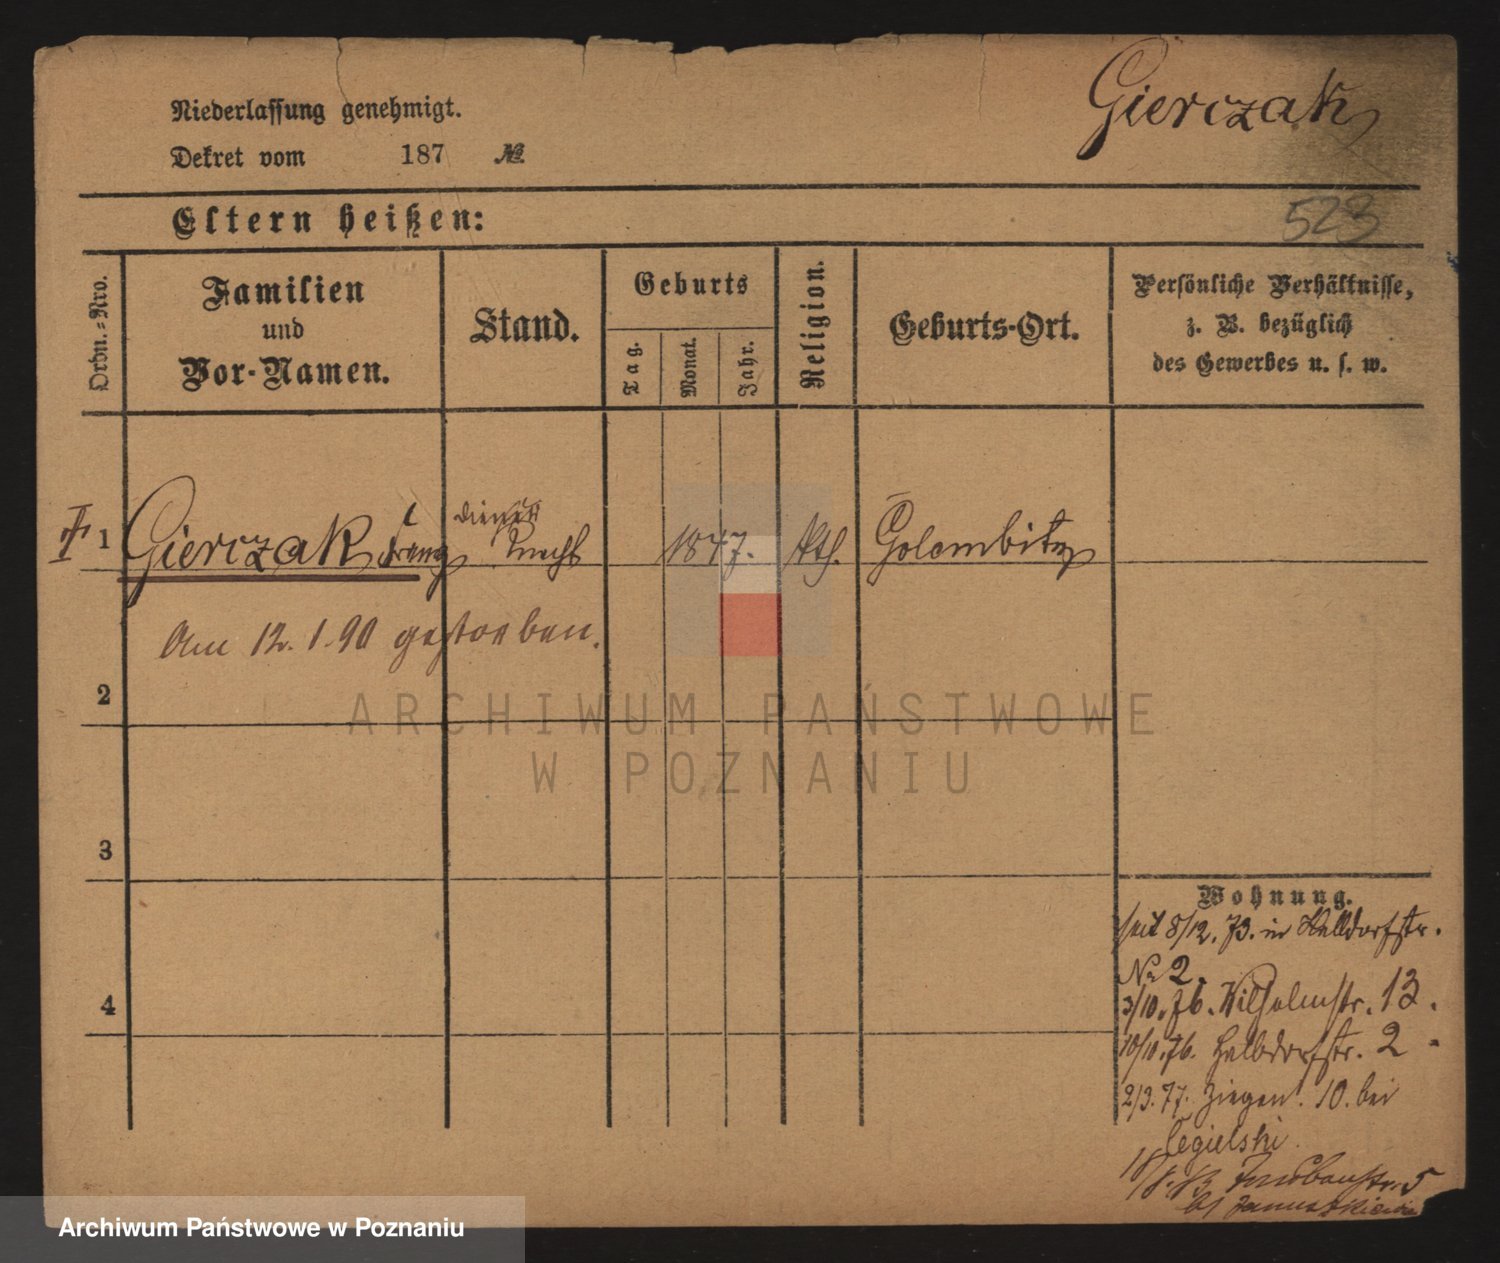 Gierczak
Niederlassung genehmigt.
Dekret vom 187 №
523
Eltern heißen:
Ordn.-Nro.
Familien
und
Vor-Namen.
Stand.
Geburts
Tag.
Monat.
Jahr.
Religion.
Geburts-Ort.
Persönliche Verhältnisse,
z. B. bezüglich
des Gewerbes u. s. w.
1 Gierczak Franz Knecht 1847. kth. Golembitz
Am 12.1.90 gestorben.
2
ARCHIWUM PAŃSTWOWE
W POZNANIU
3
4
Wohnung.
seit 8/12. 73. in Halbdorfstr.
No 2.
3/10. 76. Wilhelmstr. 13.
10/10. 76. Halbdorfstr. 2
2/3. 77. Ziegen 10. bei
Cegielski
5
Archiwum Państwowe w Poznaniu